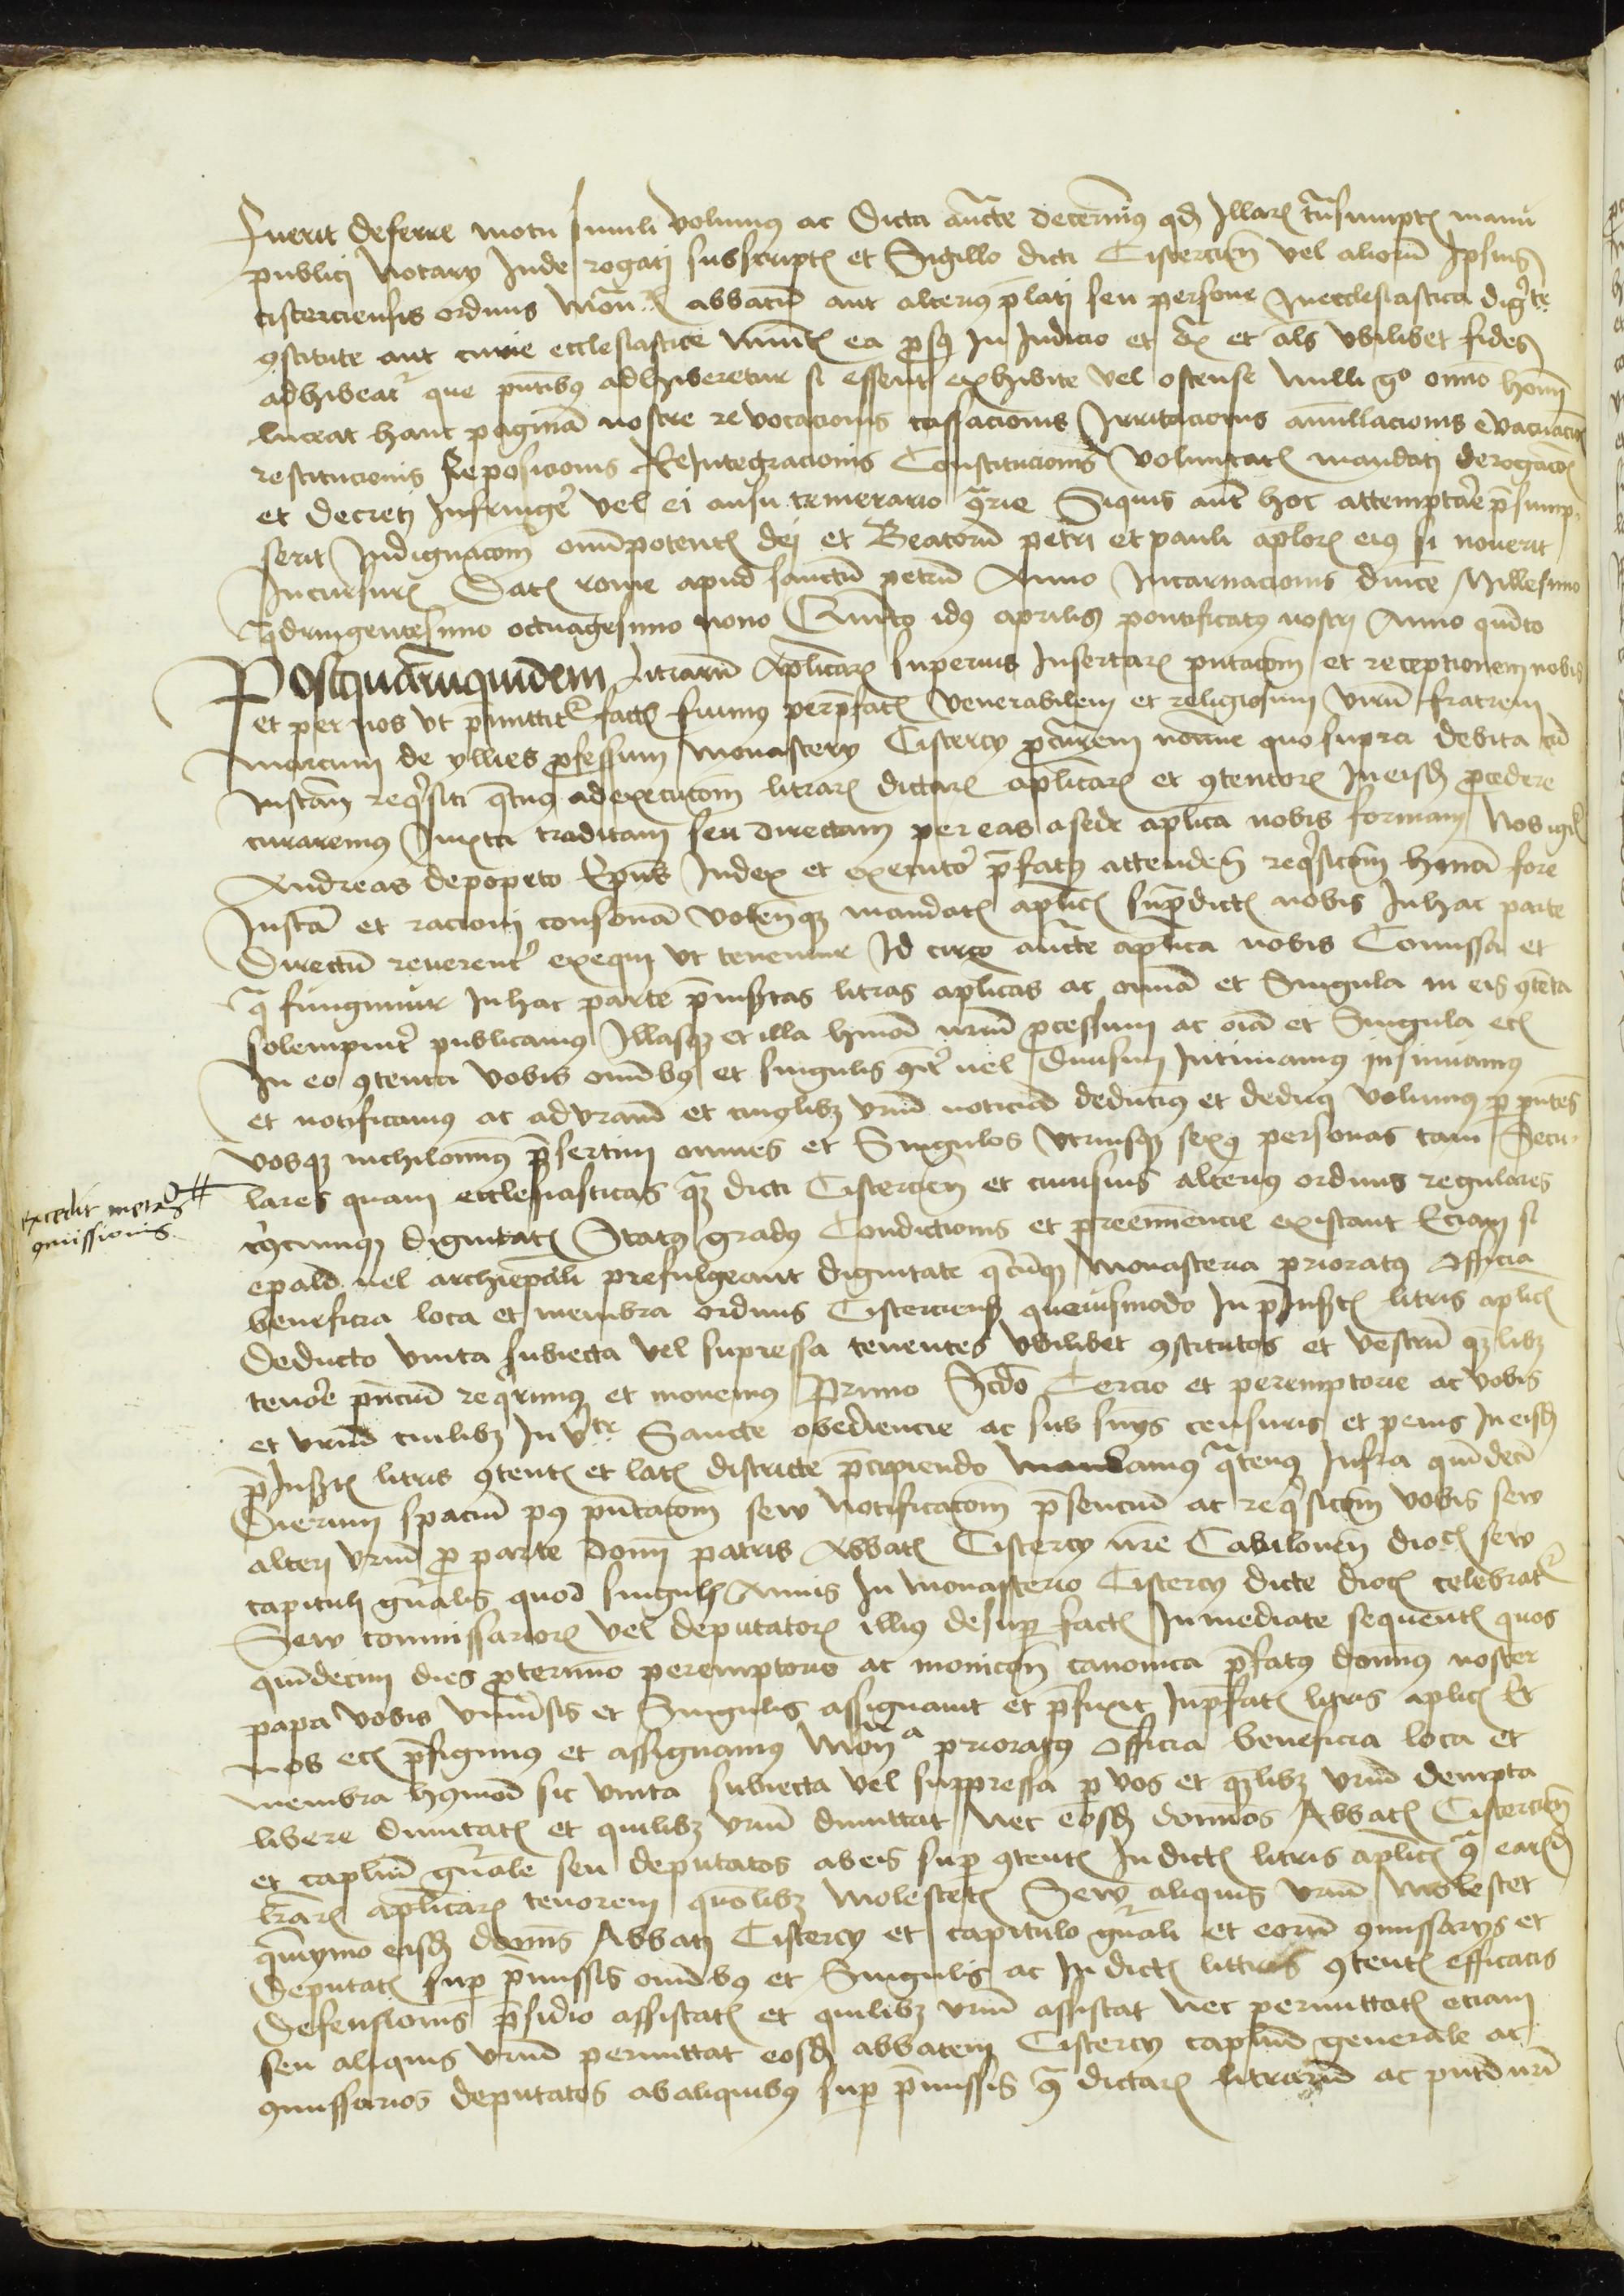 Fuerit deferre motu simili volumus ac dicta aucte decernimus qd illar transumptis manu
publici notarij inde rogati subscriptis et Sigillo dicti Cistercien vel aliorum ipsius
cisterciensis ordinis Mon abbatum aut alterius plati seu persone in ecclesiastica digte
9stitute aut curie ecclesiastice munit ea prorsus in iudicio et ex et als ubilibet fides
adhibeat que pntibus adhiberetur si essent exhibite vel ostense Nulli go omno homi
liceat hanc paginam nostre revocacionis cassacionis irritacionis annullacionis evacuacion
restitucionis reposicionis Reintegracionis Constitucionis voluntatis mandati derogacon
et decreti infringere vel ei ausu temerario 9traire Siquis aut hoc attemptare presump
serit indignacom omnipotentis dei et Beatorum petri et pauli aplor eius se noverit
incursur Dat rome apud sanctum petrum Anno incarnacionis dnice Millesimo
quadringentesimo octuagesimo nono Quinto idus aprilis pontificatus nostri Anno quinto
Postquarumquidem litrarum Aplicar superius insertar pntacom et receptionem nobis
et per nos ut premittitur fact fuimus per prefat venerabilem et religiosum virum fratrem
marcum de yllies professum monasterij Cistercij procurem nomine quo supra debita cum
instan reqsiti quatinus ad execucom litrar dictar aplicar et 9tentor in eisdem procedere
curaremus iuxta traditam seu directam per eas a sede aplica nobis formam Nos igitur
Andreas de popeto Epus iudex et executor prefatus attenden reqsicom hmoi fore
iustam et racioni consonam volensque mandatis aplicis supradictis nobis in hac parte
directum reverenter exequi ut tenemur id circo aucte aplica nobis Comissa et
qua fungimur in hac parte preinsertas litras aplicas ac omnia et Singula in eis 9tenta
solempniter publicamus illasque et illa hmoi nrum processum ac oia et Singula etc
in eo 9tenta vobis omnibus et singulis 9iter vel divisim intimamus insinuamus
et notificamus ac ad vram et cuiuslibet vrum noticiam deducimus et deduci volumus per pntes
vosque nichilominus presertim omnes et Singulos utriusque sexus personas tam Secu
lares quam ecclesiasticas quam dicti Cistercien et cuiusvis alterius ordinis regulares
excedit metas 9missionis
cuiuscumque dignitatis Status gradus Condictionis et preeminencie existant Eciam si
epali vel archiepali prefulgeant dignitate quecumque Monasteria prioratus officia
beneficia loca et membra ordinis Cisterciens quovismodo in preinsertis litris aplicis
deducto unita subiecta vel supressa tenentes ubilibet 9stitutos et vestrum quemlibet
tenore pncium requirimus et monemus Primo Scdo Tercio et peremptorie ac vobis
et vrum cuilibet in vte Sancte obediencie ac sub suis censuris et penis in eisdem
preinsertis litris 9tentis et latis districte precipiendo mandamus quatenus infra quindecim
dierum spacium post pntacom sew Notificacom presencium ac reqsicom vobis sew
alteri vrum pro parte domini patris Abbatis Cistercij nre Cabilonen dioc sew
capituli gnralis quod singulis Annis in monasterio Cistercij dicte dioc celebratur
Sew commissarior vel deputator illius desuper fact inmediate sequentes quos
quindecim dies pro termino peremptorio ac monicon canonica prefatus dominus noster
papa vobis universis et Singulis assignavit et prefixit in prefatis litris aplicis Et
nos eciam prefigimus et assignamus Mona prioratus officia beneficia loca et
membra huiusmodi sic unita subiecta vel suppressa per vos et quemlibet vrum dempta
libere dimitatis et quilibet vrum dimittat Nec eosdem dominos Abbatem Cistercien
et caplum gnrale seu deputatos ab eis super 9tentis in dictis litris aplicis 9tra earumdem
lrar aplicar tenorem quomodolibet molestetis Sew aliquis vrum molestet
quinymo eisdem dominis Abbati Cistercij et capitulo gnrali et eorum 9missarijs et
deputatis super premissis omnibus et Singulis ac in dictis litteris 9tentis efficacis
defensionis presidio assistatis et quilibet vrum assistat nec permittatis eciam
seu aliquis vrum permittat eosdem abbatem Cistercij caplum generale ac
9missarios deputatos ab aliquibus super premissis 9tra dictar litrarum ac pntium nri